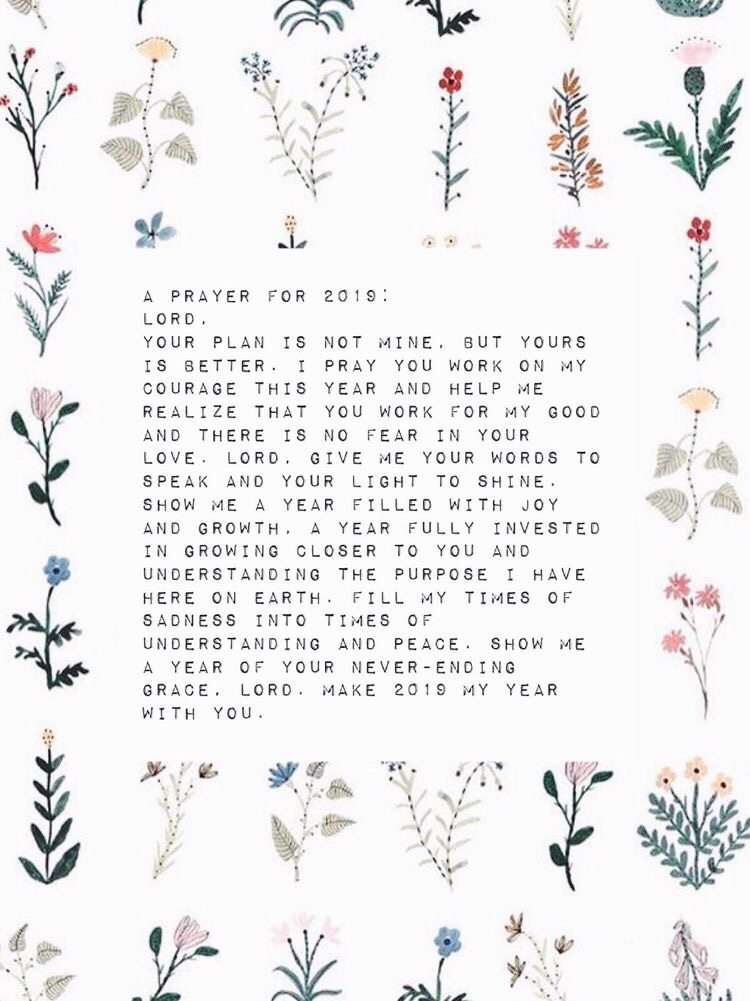 A PRAYER FOR 2019:
LORD,
YOUR PLAN IS NOT MINE, BUT YOURS
IS BETTER. I PRAY YOU WORK ON MY
COURAGE THIS YEAR AND HELP ME
REALIZE THAT YOU WORK FOR MY GOOD
AND THERE IS NO FEAR IN YOUR
LOVE. LORD, GIVE ME YOUR WORDS TO
SPEAK AND YOUR LIGHT TO SHINE.
SHOW ME A YEAR FILLED WITH JOY
AND GROWTH, A YEAR FULLY INVESTED
IN GROWING CLOSER TO YOU AND
UNDERSTANDING THE PURPOSE I HAVE
HERE ON EARTH. FILL MY TIMES OF
SADNESS INTO TIMES OF
UNDERSTANDING AND PEACE. SHOW ME
A YEAR OF YOUR NEVER-ENDING
GRACE, LORD. MAKE 2019 MY YEAR
WITH YOU.